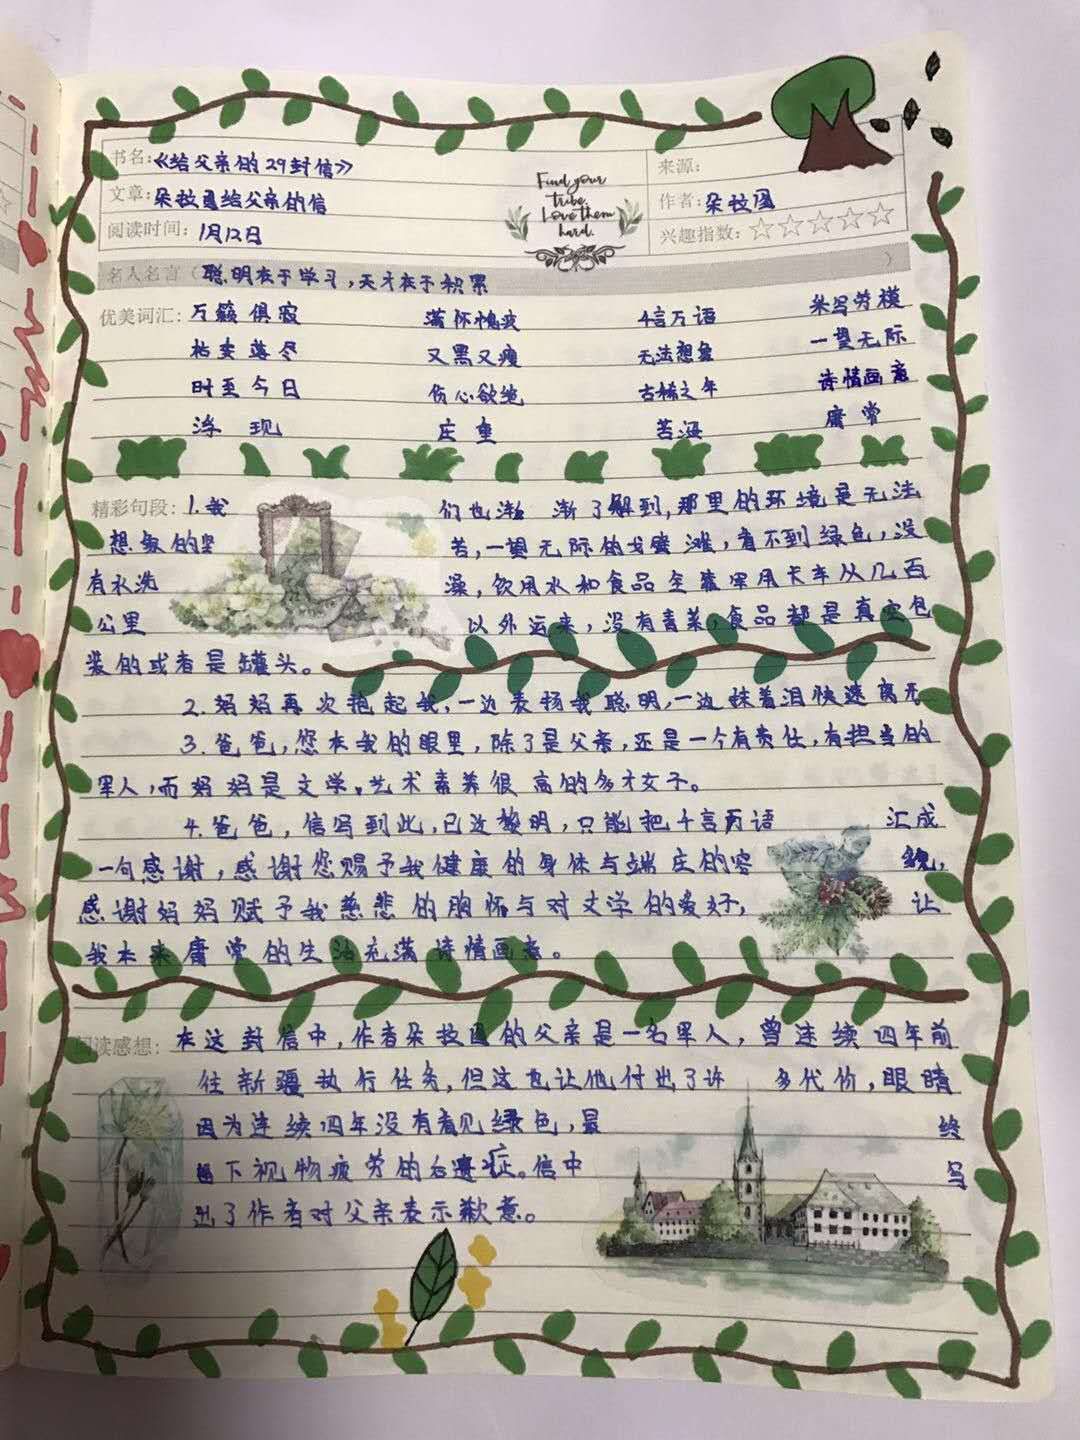 书名:《给父亲的29封信》
来源:
文章:朵拉图给父亲的信
作者:朵拉图
阅读时间:1月12日
兴趣指数:☆☆☆☆☆
Find your
tribe.
Love them
hard.
名人名言(聪明在于学习,天才在于积累)
优美词汇:万籁俱寂 满怀愧疚 千言万语 劳模
枯萎落尽 又黑又瘦 无法想象 一望无际
时至今日 伤心欲绝 古稀之年 诗情画意
浮现 庄重 苦涩 庸常
精彩句段:1.我们也渐渐了解到,那里的环境是无法
想象的坚苦,一望无际的戈壁滩,看不到绿色,没
有水洗澡,饮用水和食品全靠军用卡车从几百
公里以外运来,没有青菜,食品都是真空包
装的或者是罐头。
2.妈妈再次抱起我,一边表扬我聪明,一边抹着泪快速离开
3.爸爸,您在我的眼里,除了是父亲,还是一个有责任,有担当的
军人,而妈妈是文学。艺术素养很高的多才女子。
4.爸爸,信写到此,已近黎明,只能把千言万语汇成
一句感谢,感谢您赐予我健康的身体与端庄的容貌,
感谢妈妈赋予我慈悲的胸怀与对文学的爱好,让
我本来庸常的生活充满诗情画意。
阅读感想:在这封信中,作者朵拉图的父亲是一名军人,曾连续四年前
往新疆执行任务,但这也让他付出了许多代价,眼睛
因为连续四年没有看见绿色,最终
留下视物疲劳的后遗症。信中写
出了作者对父亲表示歉意。